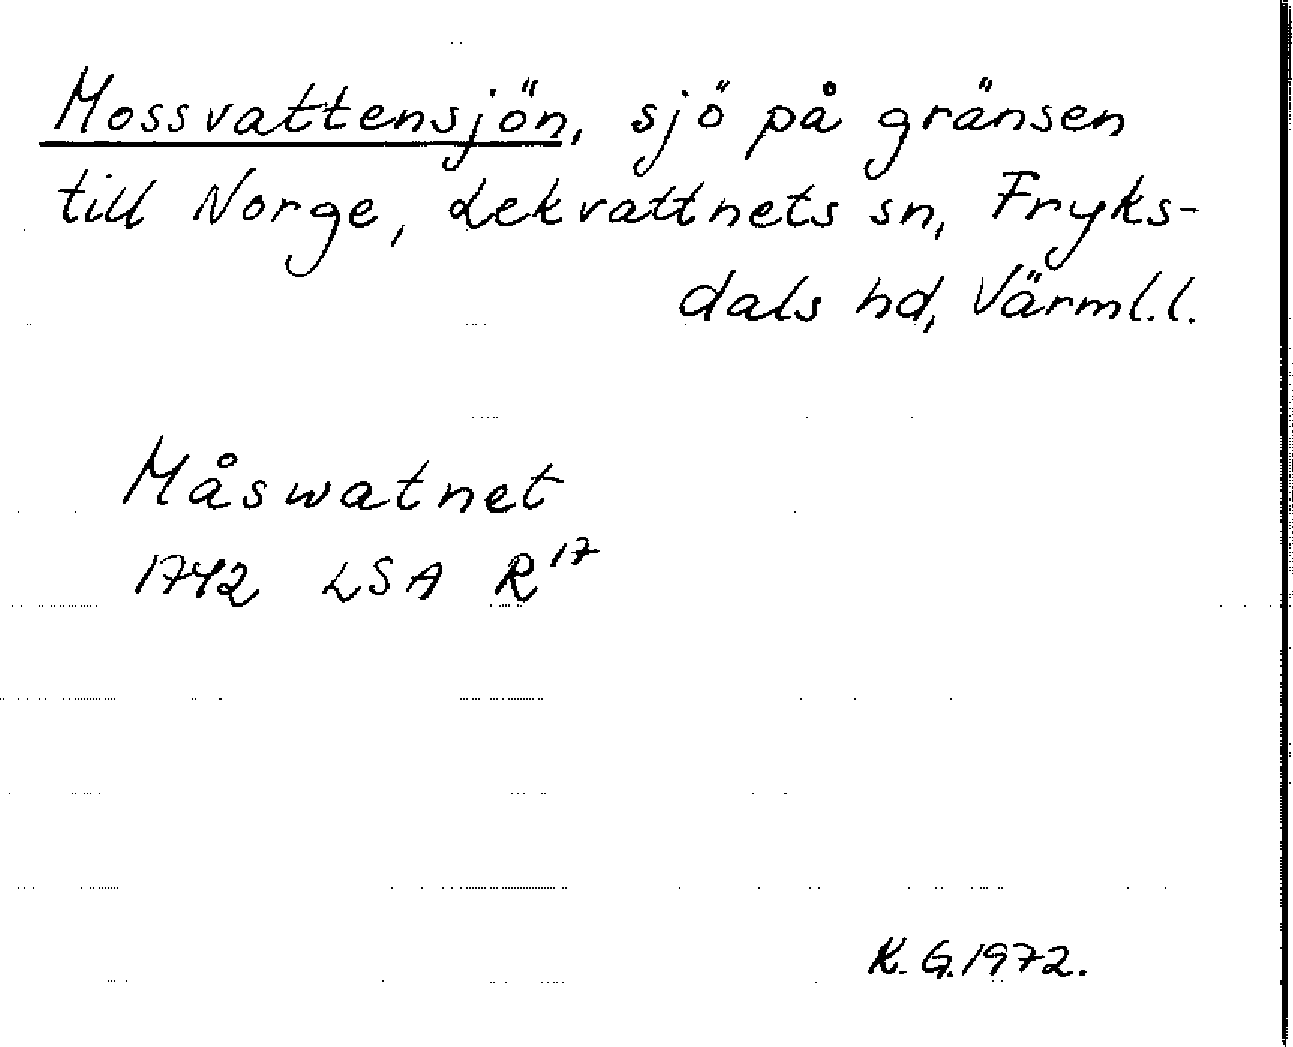 Mossvattensjön, sjö på gränsen
till Norge, Lekvattnets sn, Fryks-
dals hd, Värml.l.
Måswatnet
1742 LSA R17
K.G.1972.